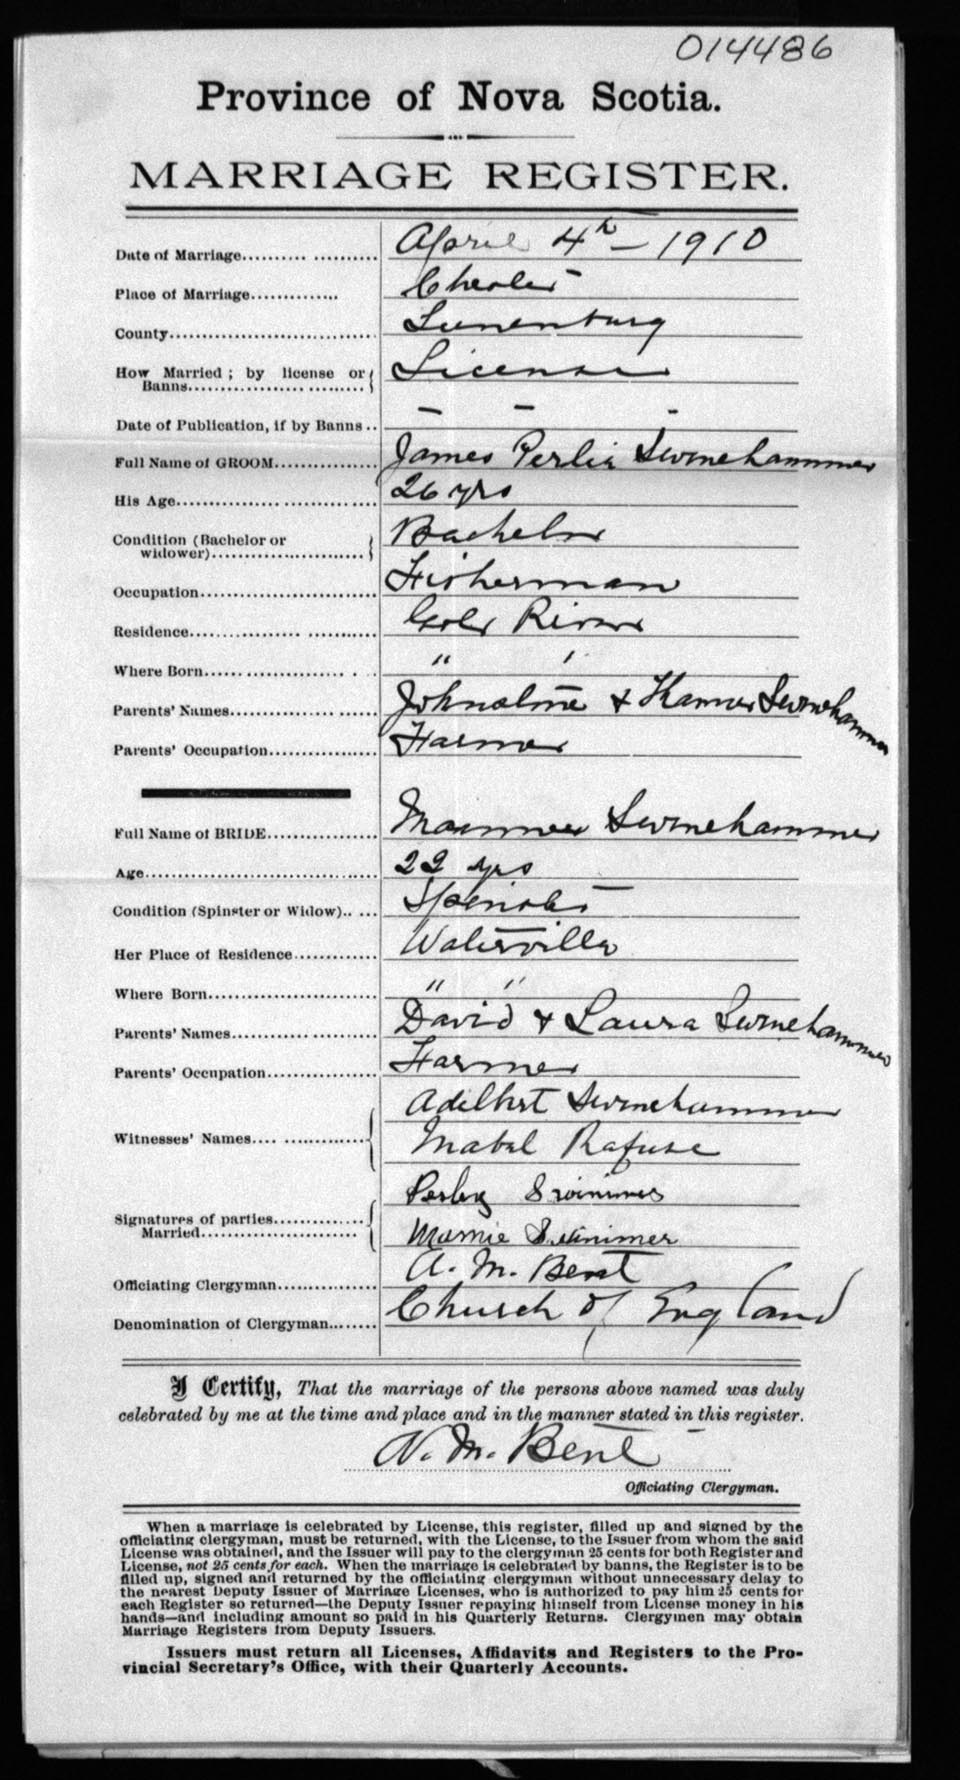 014486
Province of Nova Scotia.
MARRIAGE REGISTER.
Date of Marriage.......... .......... April 4th - 1910
Place of Marriage.............. Chester
County................................ Lunenburg
How Married ; by license or License
Banns.....................
Date of Publication, if by Banns .. - - -
Full Name of GROOM............... James Perlie Swinehammer
His Age............................. 26 yrs
Condition (Bachelor or Bachelor
widower)........................
Occupation........................... Fisherman
Residence............................ Gold River
Where Born...................... " "
Parents' Names..................... & Swinehammer
Parents' Occupation................ Farmer
Full Name of BRIDE................ Swinehammer
Age.................................. 22 yrs
Condition (Spinster or Widow).. ... Spinster
Her Place of Residence............. Waterville
Where Born......................... " "
Parents' Names..................... David & Laura Swinehammer
Parents' Occupation................ Farmer
Witnesses' Names.... .............. Adelbert Swinehammer
Mabel Rafuse
Signatures of parties............... Perley Swimmer
Married......................... Mamie Swimmer
Officiating Clergyman.............. A. M. Bent
Denomination of Clergyman........ Church of England
I Certify, That the marriage of the persons above named was duly
celebrated by me at the time and place and in the manner stated in this register.
A. M. Bent
Officiating Clergyman.
When a marriage is celebrated by License, this register, filled up and signed by the
officiating clergyman, must be returned, with the License, to the Issuer from whom the said
License was obtained, and the Issuer will pay to the clergyman 25 cents for both Register and
License, not 25 cents for each. When the marriage is celebrated by banns, the Register is to be
filled up, signed and returned by the officiating clergyman without unnecessary delay to
the nearest Deputy Issuer of Marriage Licenses, who is authorized to pay him 25 cents for
each Register so returned—the Deputy Issuer repaying himself from License money in his
hands—and including amount so paid in his Quarterly Returns. Clergymen may obtain
Marriage Registers from Deputy Issuers.
Issuers must return all Licenses, Affidavits and Registers to the Pro-
vincial Secretary's Office, with their Quarterly Accounts.